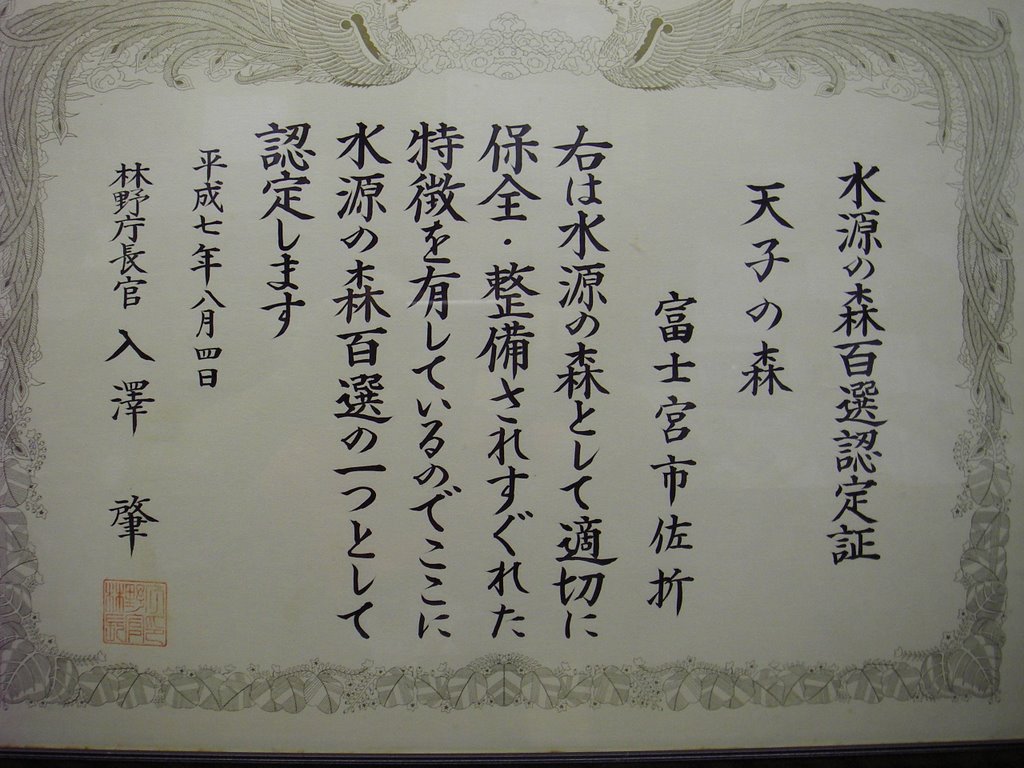 水源の森百選認定証
天子の森
富士宮市佐折
右は水源の森として適切に
保全・整備されすぐれた
特徴を有しているのでここに
水源の森百選の一つとして
認定します
平成七年八月四日
林野庁長官 入澤 肇